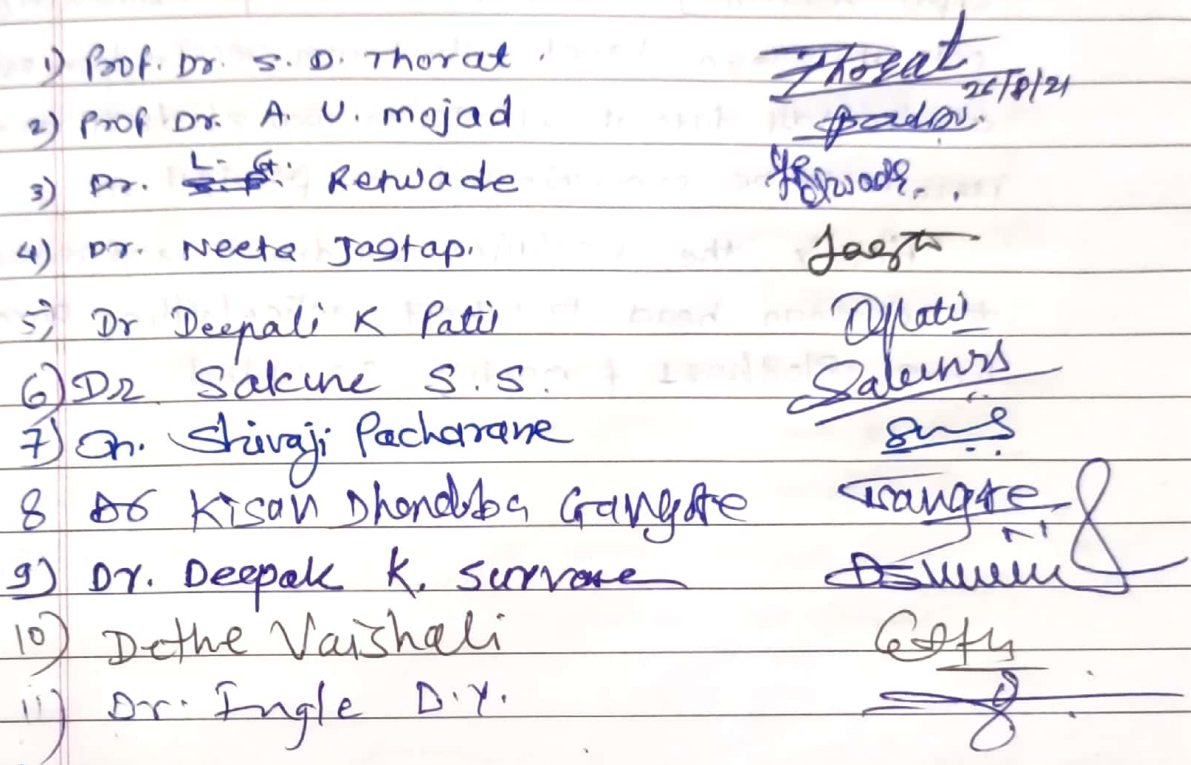 1) Prof. Dr. S. D. Thorat. Thorat
26/8/21
2) Prof Dr. A. U. mojad
3) Dr. L. G. Renwade
4) Dr. Neeta Jagtap.
5) Dr Deepali K Patil DPatil
6) Dr Sakune S.S.
7) Dr. Shivaji Pacharane
8 Dr Kisan Dhondiba Gangrde Gangrde
9) Dr. Deepak K. Survase
10) Dethe Vaishali
11) Dr. Ingle D.Y.